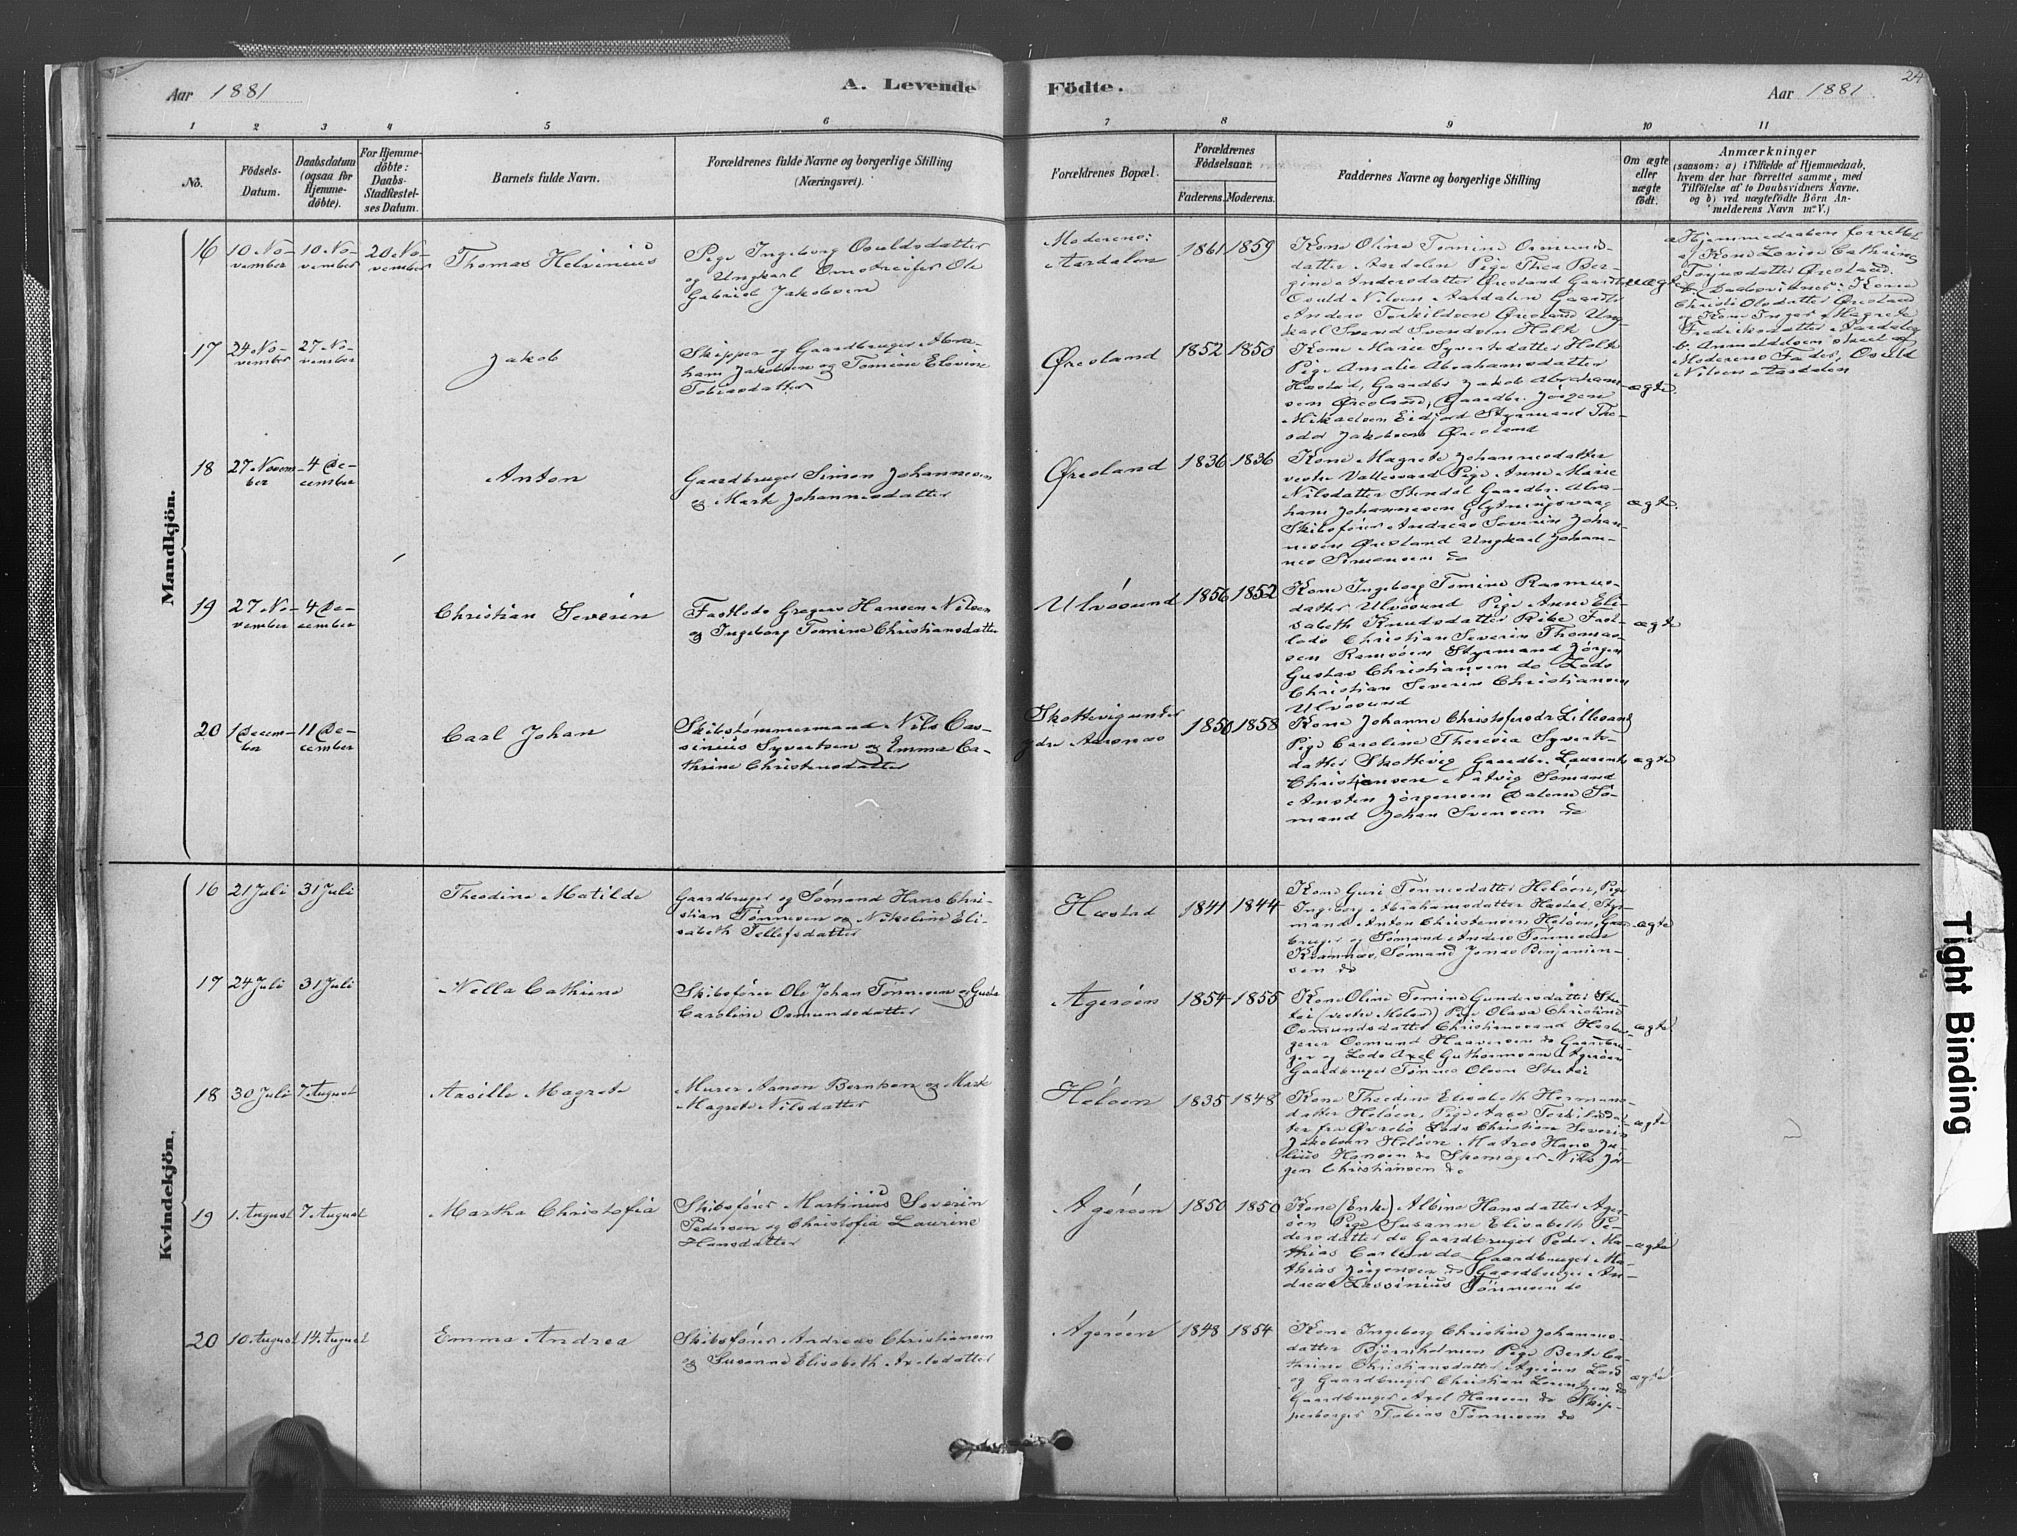 24
Aar 1881
A. Levende
Födte.
Aar 1881
1 2 3 4 5 6 7 8 9 10 11
No.
Födsels-
Datum.
Daabsdatum
(ogsaa for
Hjemme-
döbte).
For Hjemme-
döbte:
Daabs-
Stadfæstel-
ses Datum.
Barnets fulde Navn.
Forældrenes fulde Navne og borgerlige Stilling
(Næringsvei).
Forældrenes Bopæl.
Forældrenes
Födselsaar.
Faderens. Moderens.
Faddernes Navne og borgerlige Stilling
Om ægte
eller
uægte
födt.
Anmærkninger
(saasom: a) i Tilfælde af Hjemmedaab,
hvem der har forrettet samme, med
Tilföielse af to Daabsvidners Navne,
og b) ved uægtefödte Börn An-
melderens Navn m. V.)
Mandkjön.
16
10 No-
vember
10 No-
vember
20 No-
vember
Thomas Helvinius
Pige Ingeborg Osuldsdatter
og Ungkarl Ole
Gabriel Jakobsen
Moderens:
Aardalen
1861 1859
Kone Oline Tomine Osmunds-
datter Aardalen Pige Thea Ber-
gine Andersdatter Øresland Gaardbr
Osuld Nilsen Aardalen Gaardbr
Anders Torkildsen Øresland Ung-
karl Svend Svendsen Holte
uægte
a Hjemmedaaben forrettet
af Kone Lovise Cathrine
Terjusdatter Øresland.
Daabsvidner: Kone
Christi Olsdatter Øresland
og Kone Inger Magrete
Fredriksdatter Aardalen
b. Anmeldelsen skeet af
Moderens Fader, Osuld
Nilsen Aardalen
17
24 No-
vember
27 No-
vember
Jakob
Skipper og Gaardbruger Abra-
ham Jakobsen og Tomine Elevine
Tobiasdatter
Øresland
1852 1850
Kone Marie Syvertsdatter Holte
Pige Amalie Abrahamsdatter
Hæstad, Gaardbr Jakob Abraham-
sen Øresland, Gaardbr. Jørgen
Mikaelsen Eidjord Styrmand The-
odor Jakobsen Øresland
ægte
18
27 Novem-
ber
4 De-
cember
Anton
Gaardbruger Simon Johannesen
og Mark Johannesdatter
Øresland
1836 1836
Kone Magrete Johannesdatter
vestre Vallesværd Pige Anne Marie
Nilsdatter Stendal Gaardbr. Abra-
ham Johannesen
Skibsfører Andreas Severin Johan-
nesen Øresland Ungkarl Johan-
nes Simonsen do
ægte
19
27 No-
vember
4 De-
cember
Christian Severin
Fastlods Gregers Hansen Nilsen
og Ingeborg Tomine Christiansdatter
Ulvøsund
1856 1852
Kone Ingeborg Tomine Rasmus-
datter Ulvøsund Pige Anne Eli-
sabeth Knudsdatter Ribe Fast-
lods Christian Severin Thomas-
sen Ramsøen Styrmand Jørgen
Gustav Christiansen do Lods
Christian Severin Christiansen
Ulvøsund
ægte
20
1 Decem-
ber
11 De-
cember
Carl Johan
Skibstømmermand Nils Cas-
sinius Syvertsen og Emma Ca-
thrine Christensdatter
Skottevig under
ydre Aaranæs
1850 1858
Kone Johanne Christofersdr Lillesand
Pige Caroline Theresia Syverts-
datter Skottevig Gaardbr. Laurents
Christiansen Natvig Sømand
Ansten Jørgensen Dalene Sø-
mand Johan Svensen do
ægte
Kvindekjön.
16
21 Juli
31 Juli
Theodine Matilde
Gaardbruger og Sømand Hans Chri-
stian Tønnesen og Nikoline Eli-
sabeth Tellefsdatter
Hæstad
1841 1844
Kone Guri Tønnesdatter Heløen, Pige
Ingeborg Abrahamsdatter Hæstad, Styr-
mand Anton Christensen Heløen, Gaard-
bruger og Sømand Anders Tønnesen
Kvannes, Sømand Jonas Benjamin-
sen do
ægte
17
24 Juli
31 Juli
Nella Cathrine
Skibsfører Ole Johan Tønnesen og Gusta
Caroline Osmundsdatter
Agerøen
1854 1855
Kone Oline Tomine Gundersdatter Stu-
tøi (vestre Molen) Pige Olava Christine
Osmundsdatter Christianssand Herber-
gerer Osmund Haaversen do Gaardbru-
ger og Lods Axel Guthormsen Agerøen
Gaardbruger Tønnes Olsen Stutøi
ægte
18
30 Juli
7 August
Aasille Magrete
Murer Aanon Berntsen og Mark
Magrete Nilsdatter
Heløen
1835 1848
Kone Theodine Elisabeth Hermans-
datter Heløen, Pige Aase Torkildsdat-
ter fra Øvrebø Lods Christian Severin
Jakobsen Heløen Matros Hans Ju-
lius Hansen do Skomager Nils Jør-
gen Christiansen do
ægte
19
1. August
7. August
Martha Christofia
Skibsfører Martinius Severin
Pedersen og Christofia Laurine
Hansdatter
Agerøen
1850 1850
Kone (Enke) Albine Hansdatter Ager-
øen Pige Susanne Elisabeth Pe-
dersdatter do Gaardbruger Peder Ma-
thias Carlsen do Gaardbruger Ma-
thias Jørgensen do Gaardbruger An-
dreas Zassinius Tønnesen do
ægte
20
10. August
14. August
Emma Andrea
Skibsfører Andreas Christiansen
og Susanne Elisabeth Axelsdatter
Agerøen
1848 1854
Kone Ingeborg Christine Johannes-
datter Bjørnholmen Pige Berte Ca-
thrine Christiansdatter Agerøen Lods
og Gaardbruger Christian Lorentzen do
Gaardbruger Axel Hansen do Skip-
perborger Tobias Tønnesen do
ægte
Tight Binding